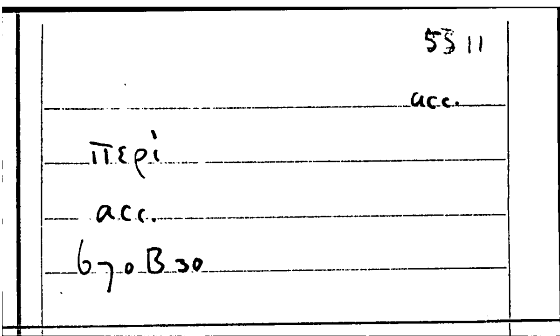 5511
acc.
περὶ
acc.
670B30